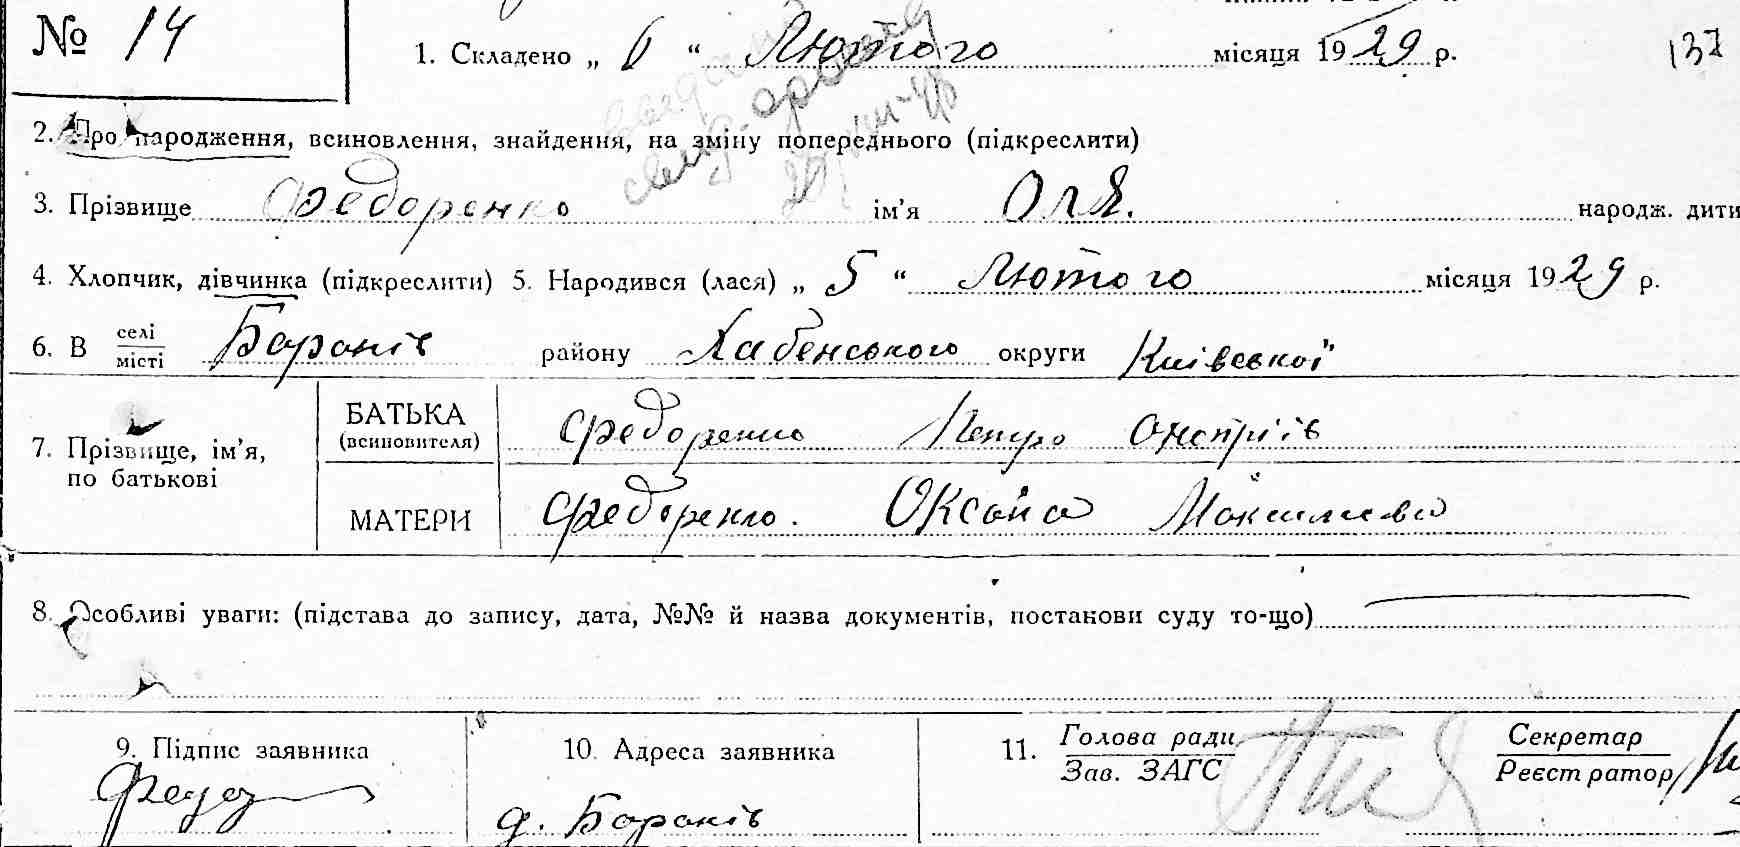 № 14
1. Складено „ 6 “ Лютого місяця 1929 р. 137
2. Про народження, всиновлення, знайдення, на зміну попереднього (підкреслити)
3. Прізвище Федоренко ім’я Оля. народж. дити
4. Хлопчик, дівчинка (підкреслити) 5. Народився (лася) „ 5 “ Лютого місяця 1929 р.
6. В селі місті Боронів району Хабенського округи Київської
7. Прізвище, ім’я, по батькові
БАТЬКА (всиновителя) Федоренко Петро Онопріів
МАТЕРИ Федоренко. Оксана Максимова
8. Особливі уваги: (підстава до запису, дата, №№ й назва документів, постанови суду то-що)
9. Підпис заявника 10. Адреса заявника 11. Голова ради Зав. ЗАГС Секретар Реєстратор
д. Боронів